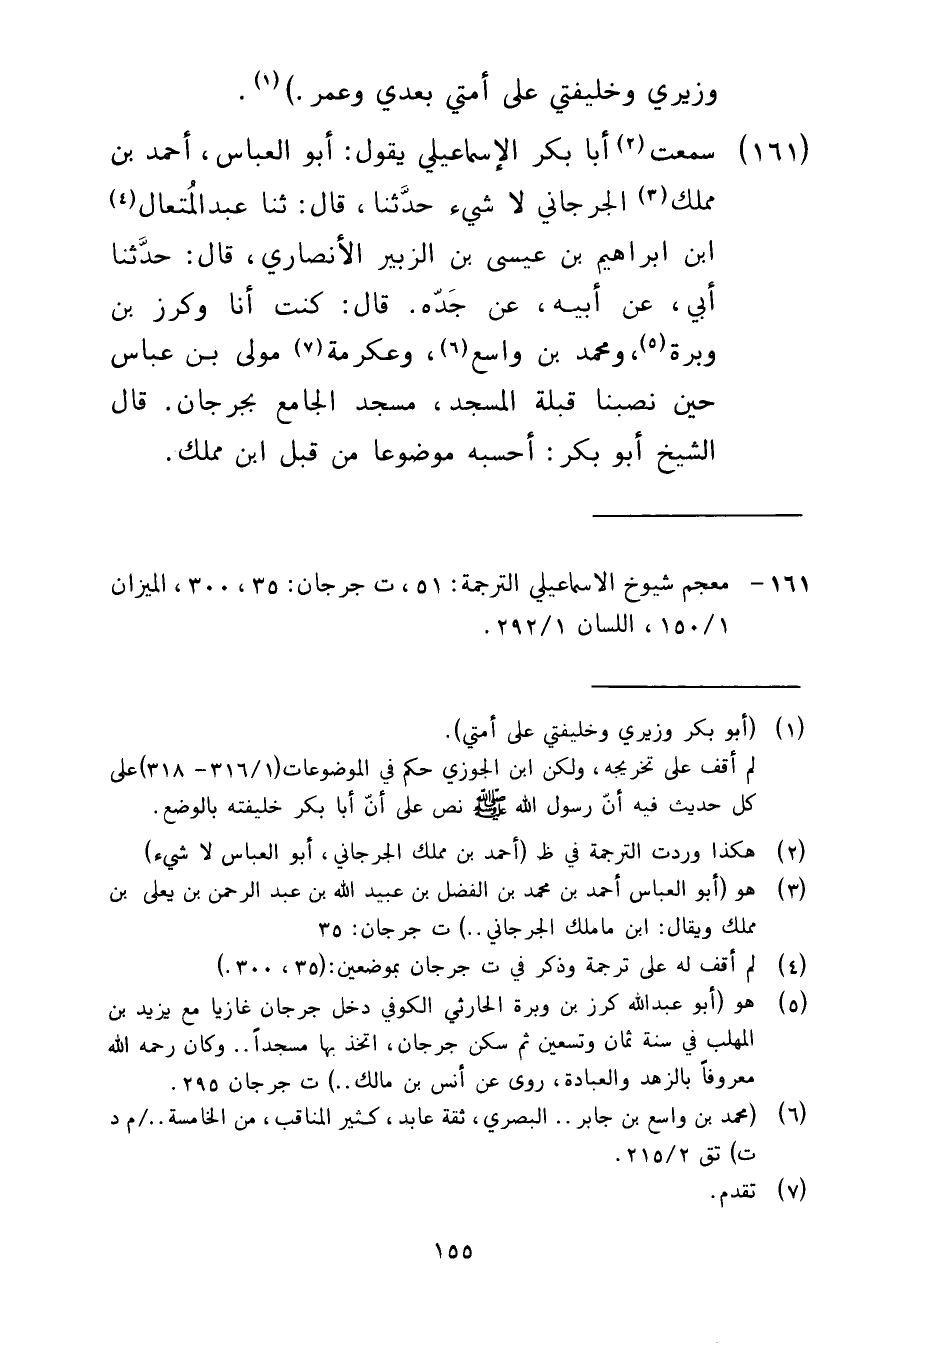 وزيري وخليفتي على أمتي بعدي وعمر .)(١) .
(١٦١) سمعت(٢) أبا بكر الإسماعيلي يقول: أبو العباس، أحمد بن
مملك(٣) الجرجاني لا شيء حدَّثنا، قال: ثنا عبدالمُتعال(٤)
ابن ابراهيم بن عيسى بن الزبير الأنصاري، قال: حدَّثنا
أبي، عن أبيه، عن جَدّه. قال: كنت أنا وكرز بن
وبرة(٥)، ومحمد بن واسع(٦)، وعكرمة(٧) مولى بن عباس
حين نصبنا قبلة المسجد، مسجد الجامع بجرجان. قال
الشيخ أبو بكر: أحسبه موضوعا من قبل ابن مملك.
١٦١ - معجم شيوخ الاسماعيلي الترجمة: ٥١، ت جرجان: ٣٥، ٣٠٠، الميزان
١/١٥٠، اللسان ١/٢٩٢.
(١) (أبو بكر وزيري وخليفتي على أمتي).
لم أقف على تخريجه، ولكن ابن الجوزي حكم في الموضوعات(١/٣١٦- ٣١٨)على
كل حديث فيه أنّ رسول الله ﷺ نص على أنّ أبا بكر خليفته بالوضع.
(٢) هكذا وردت الترجمة في ظ (أحمد بن مملك الجرجاني، أبو العباس لا شيء)
(٣) هو (أبو العباس أحمد بن محمد بن الفضل بن عبيد الله بن عبد الرحمن بن يعلى بن
مملك ويقال: ابن ماملك الجرجاني..) ت جرجان: ٣٥
(٤) لم أقف له على ترجمة وذكر في ت جرجان بموضعين:(٣٥، ٣٠٠.)
(٥) هو (أبو عبدالله كرز بن وبرة الحارثي الكوفي دخل جرجان غازيا مع يزيد بن
المهلب في سنة ثمان وتسعين ثم سكن جرجان، اتخذ بها مسجداً.. وكان رحمه الله
معروفاً بالزهد والعبادة، روى عن أنس بن مالك..) ت جرجان ٢٩٥.
(٦) (محمد بن واسع بن جابر .. البصري، ثقة عابد، كثير المناقب، من الخامسة../م د
ت) تق ٢/٢١٥.
(٧) تقدم.
١٥٥